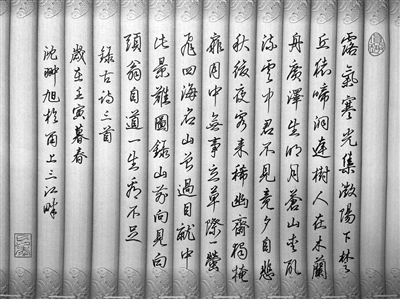 露氣寒光集微陽下楚
丘猿啼洞庭樹人在木蘭
舟廣澤生明月蒼山夾亂
流雲中君不見竟夕自悲
秋後夜客来稀幽齋獨掩
扉月中無事立草際一螢
飛四海名山曾過目就中
此景難圖錄山前向見白
頭翁自道一生看不足
錄古詩三首
歲在壬寅暮春
沈旭於甬上三江畔